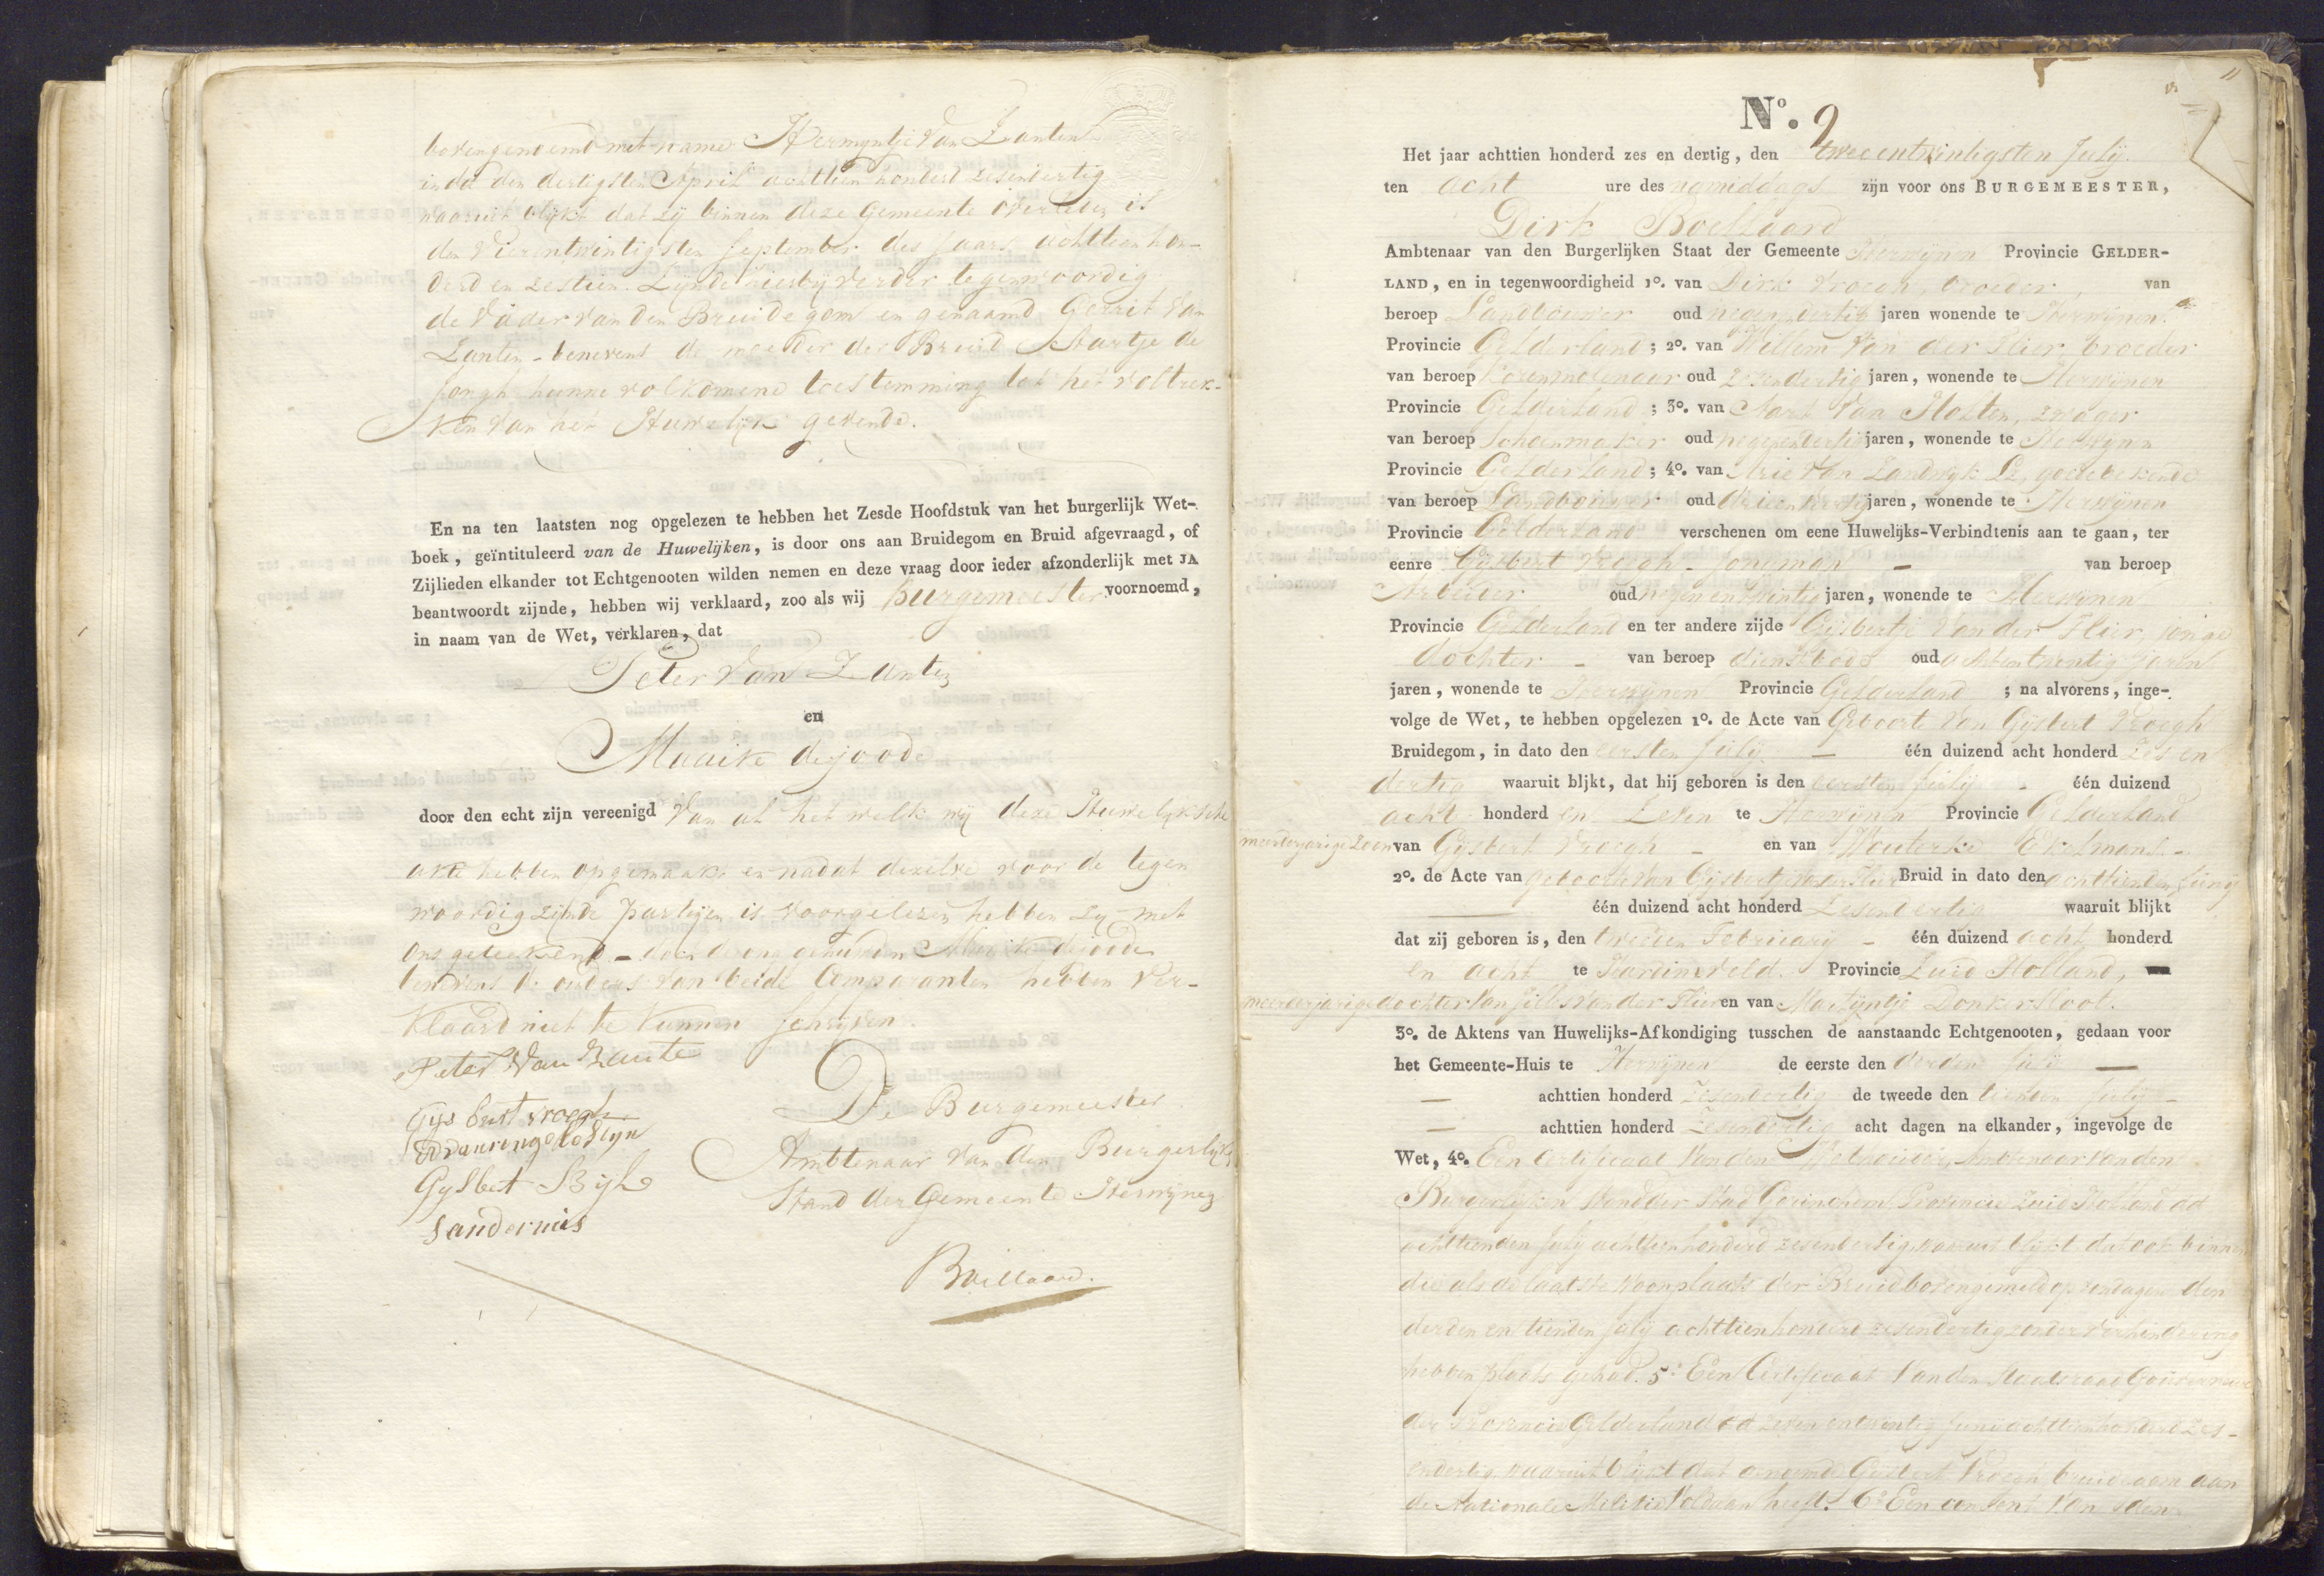 bovengenoemd met name Hermyntje van Zanten
in dd den dertigsten April achttien hondert zesendertig
waaruit blijkt dat zij binnen deze Gemeente overleden is
den vierentwintigsten September des Jaars achttien hon-
derd en zestien. Zijnde hierbij verder tegenwoordig
de Vader van den Bruidegom en genaamd Gerrit van
Zanten - benevens de moeder der Bruid Aartje de
Jongh hunne volkomene toestemming tot het voltrek-
ken van het Huwelijk gevende.
En na ten laatsten nog opgelezen te hebben het Zesde Hoofdstuk van het burgerlijk Wet-
boek, geïntituleerd van de Huwelijken, is door ons aan Bruidegom en Bruid afgevraagd, of
Zijlieden elkander tot Echtgenooten wilden nemen en deze vraag door ieder afzonderlijk met JA
beantwoordt zijnde, hebben wij verklaard, zoo als wij Burgemeester voornoemd,
in naam van de Wet, verklaren, dat
Peter van Zanten
en
Maaike de joode
door den echt zijn vereenigd Van al het welk wij deze Huwelijksche
akte hebben opgemaakt en nadat dezelve voor de tegen
woordig zijnde partijen is voorgelezen hebben zij met
ons geteekend - doch de Maaike de joode
benevens de ouders van beide Comparanten hebben ver-
klaard niet te kunnen schrijven.
Peter van Zante
Gysbert vroegh
Gysbert Bijl
Sandernis
De Burgemeester
Ambtenaar van den Burgerlijke
Stand der Gemeente Herwijnen
Boellaard.
11
N°. 9
Het jaar achttien honderd zes en dertig, den tweeentwintigsten Julij
ten acht ure des namiddags zijn voor ons BURGEMEESTER,
Dirk Boellaard
Ambtenaar van den Burgerlijken Staat der Gemeente Herwijnen Provincie GELDER-
LAND, en in tegenwoordigheid 1°. van Dirk Vroegh, broeder, van
beroep Landbouwer oud negenendertig jaren wonende te Herwijnen
Provincie Gelderland; 2°. van Willem van der Flier, broeder
van beroep Korenmolenaar oud zesendertig jaren, wonende te Herwijnen
Provincie Gelderland; 3°. van Aart van Maten, zwager
van beroep Schoenmaker oud negenendertig jaren, wonende te Herwijnen
Provincie Gelderland; 4°. van Arie van Zandwyk Lz, goede bekende
van beroep Landbouwer oud drieendertig jaren, wonende te Herwijnen
Provincie Gelderland verschenen om eene Huwelijks-Verbindtenis aan te gaan, ter
eenre Gysbert Vroegh - jongman - van beroep
Arbeider oud negenentwintig jaren, wonende te Herwijnen
Provincie Gelderland en ter andere zijde Gijsbertje van der Flier, jonge
dochter - van beroep dienstbode oud achtentwintig jaren
jaren, wonende te Herwijnen Provincie Gelderland ; na alvorens, inge-
volge de Wet, te hebben opgelezen 1°. de Acte van Geboorte van Gijsbert Vroegh
Bruidegom, in dato den eersten Julij - één duizend acht honderd zes en
dertig waaruit bljkt, dat hij geboren is den eersten Julij - één duizend
acht honderd en zeven te Herwijnen Provincie Gelderland
meerderjarige zoon van Gysbert Vroegh - en van Wouterske Ekelmans -
2°. de Acte van geboorte van Gijsbertje van der Flier Bruid in dato den achttienden Junij
één duizend acht honderd Zesendertig waaruit blijkt
dat zij geboren is, den tweeden Februarij - één duizend acht honderd
en acht te Hardinxveld Provincie Zuid Holland,
meerderjarige dochter van Jillis van der Flier en van Martijntje Donkersloot.
3°. de Aktens van Huwelijks-Afkondiging tusschen de aanstaande Echtgenooten, gedaan voor
het Gemeente-Huis te Herwijnen de eerste den derden Julij
achttien honderd Zesendertig de tweede den tienden Julij
achttien honderd Zesendertig acht dagen na elkander, ingevolge de
Wet, 4°. Een Certificaat van den Wethouder Ambtenaar van den
Burgerlijken Stand der Stad Gorinchem Provincie Zuid Holland dd
achttienden July achttienhonderd zesendertig waaruit blijkt dat ook binnen
die als de laatste woonplaats der Bruid bovengemeld op zondagen den
derden en tienden Julij achttienhonderd zesendertig zonder verhindering
hebben plaats gehad. 5° Een Certificaat van den Staatsraad Gouverneur
der Provincie Gelderland dd zevenentwintig Juny achttienhonderd zes-
endertig waaruit blijkt dat genoemde Gysbert Vroegh bruidegom aan
de Nationale Militie Voldaan heeft. 6° Een consent van den